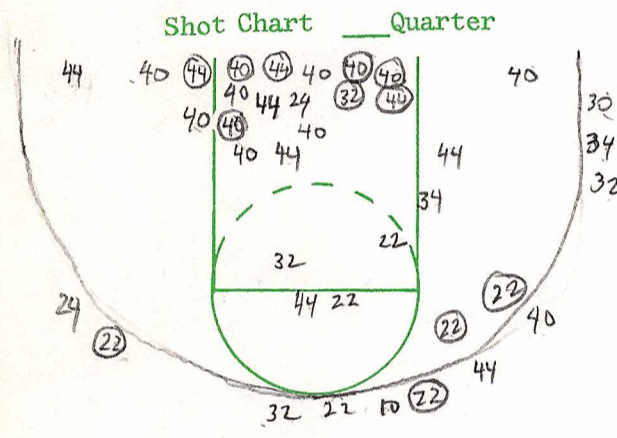 Shot Chart ___Quarter
44 40 44 40 44 40 40 40 40
40 44 24 32 44 30
40 40 40
40 44 44 34
32
34
22
32
44 22
24 22 22 22 40
44
32 22 10 22